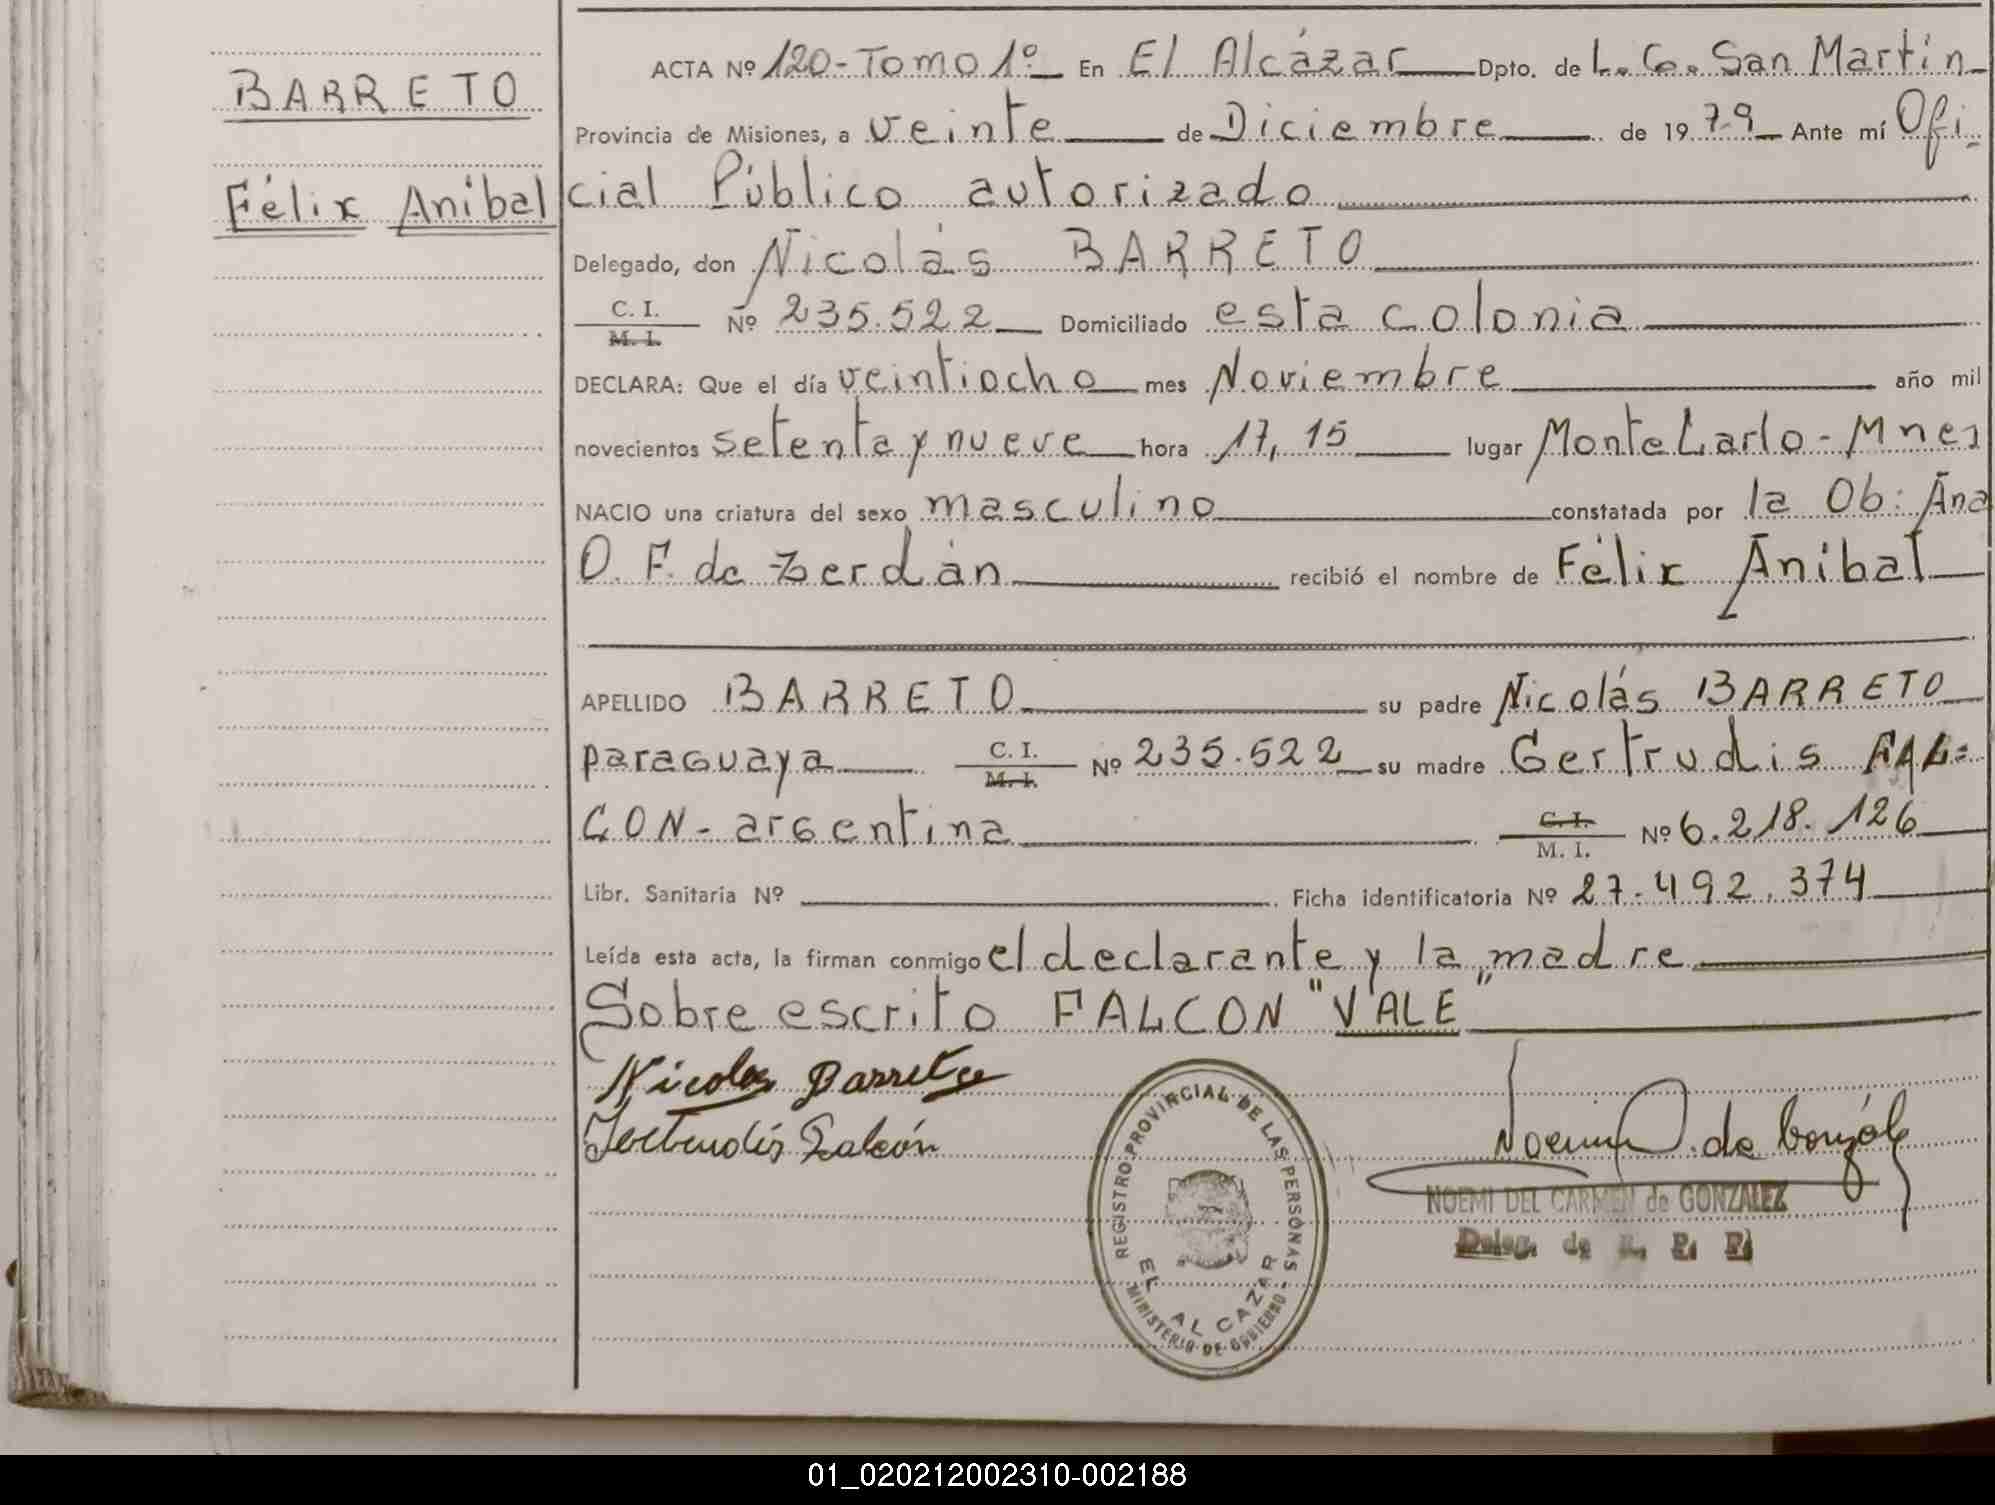 BARRETO
Félix Aníbal
ACTA Nº 120-Tomo 1º En El Alcázar Dpto. de L. G. San Martín
Provincia de Misiones, a veinte de Diciembre de 1979 Ante mí Ofi-
cial Público autorizado
Delegado, don Nicolás BARRETO
C. I.
M. I.
Nº 235.522 Domiciliado esta colonia
DECLARA: Que el día veintiocho mes Noviembre año mil
novecientos setenta y nueve hora 17,15 lugar Monte Carlo - Mnes
NACIO una criatura del sexo masculino constatada por la Ob: Ana
O. F. de Zerdán recibió el nombre de Félix Aníbal
APELLIDO BARRETO su padre Nicolás BARRETO
paraguaya C. I. M. I. Nº 235.522 su madre Gertrudis FAL=
CON - argentina C. I. M. I. Nº 6.218.126
Libr. Sanitaria Nº Ficha identificatoria Nº 27.492.374
Leída esta acta, la firman conmigo el declarante y la madre
Sobre escrito FALCON "VALE"
Nicolas Barreto
Gertrudis Falcón
Noemi D. de Gonzál
REGISTRO PROVINCIAL DE LAS PERSONAS
EL ALCAZAR
MINISTERIO DE GOBIERNO
NOEMI DEL CARMEN de GONZALEZ
Deleg. de R. P. P.
01_020212002310-002188